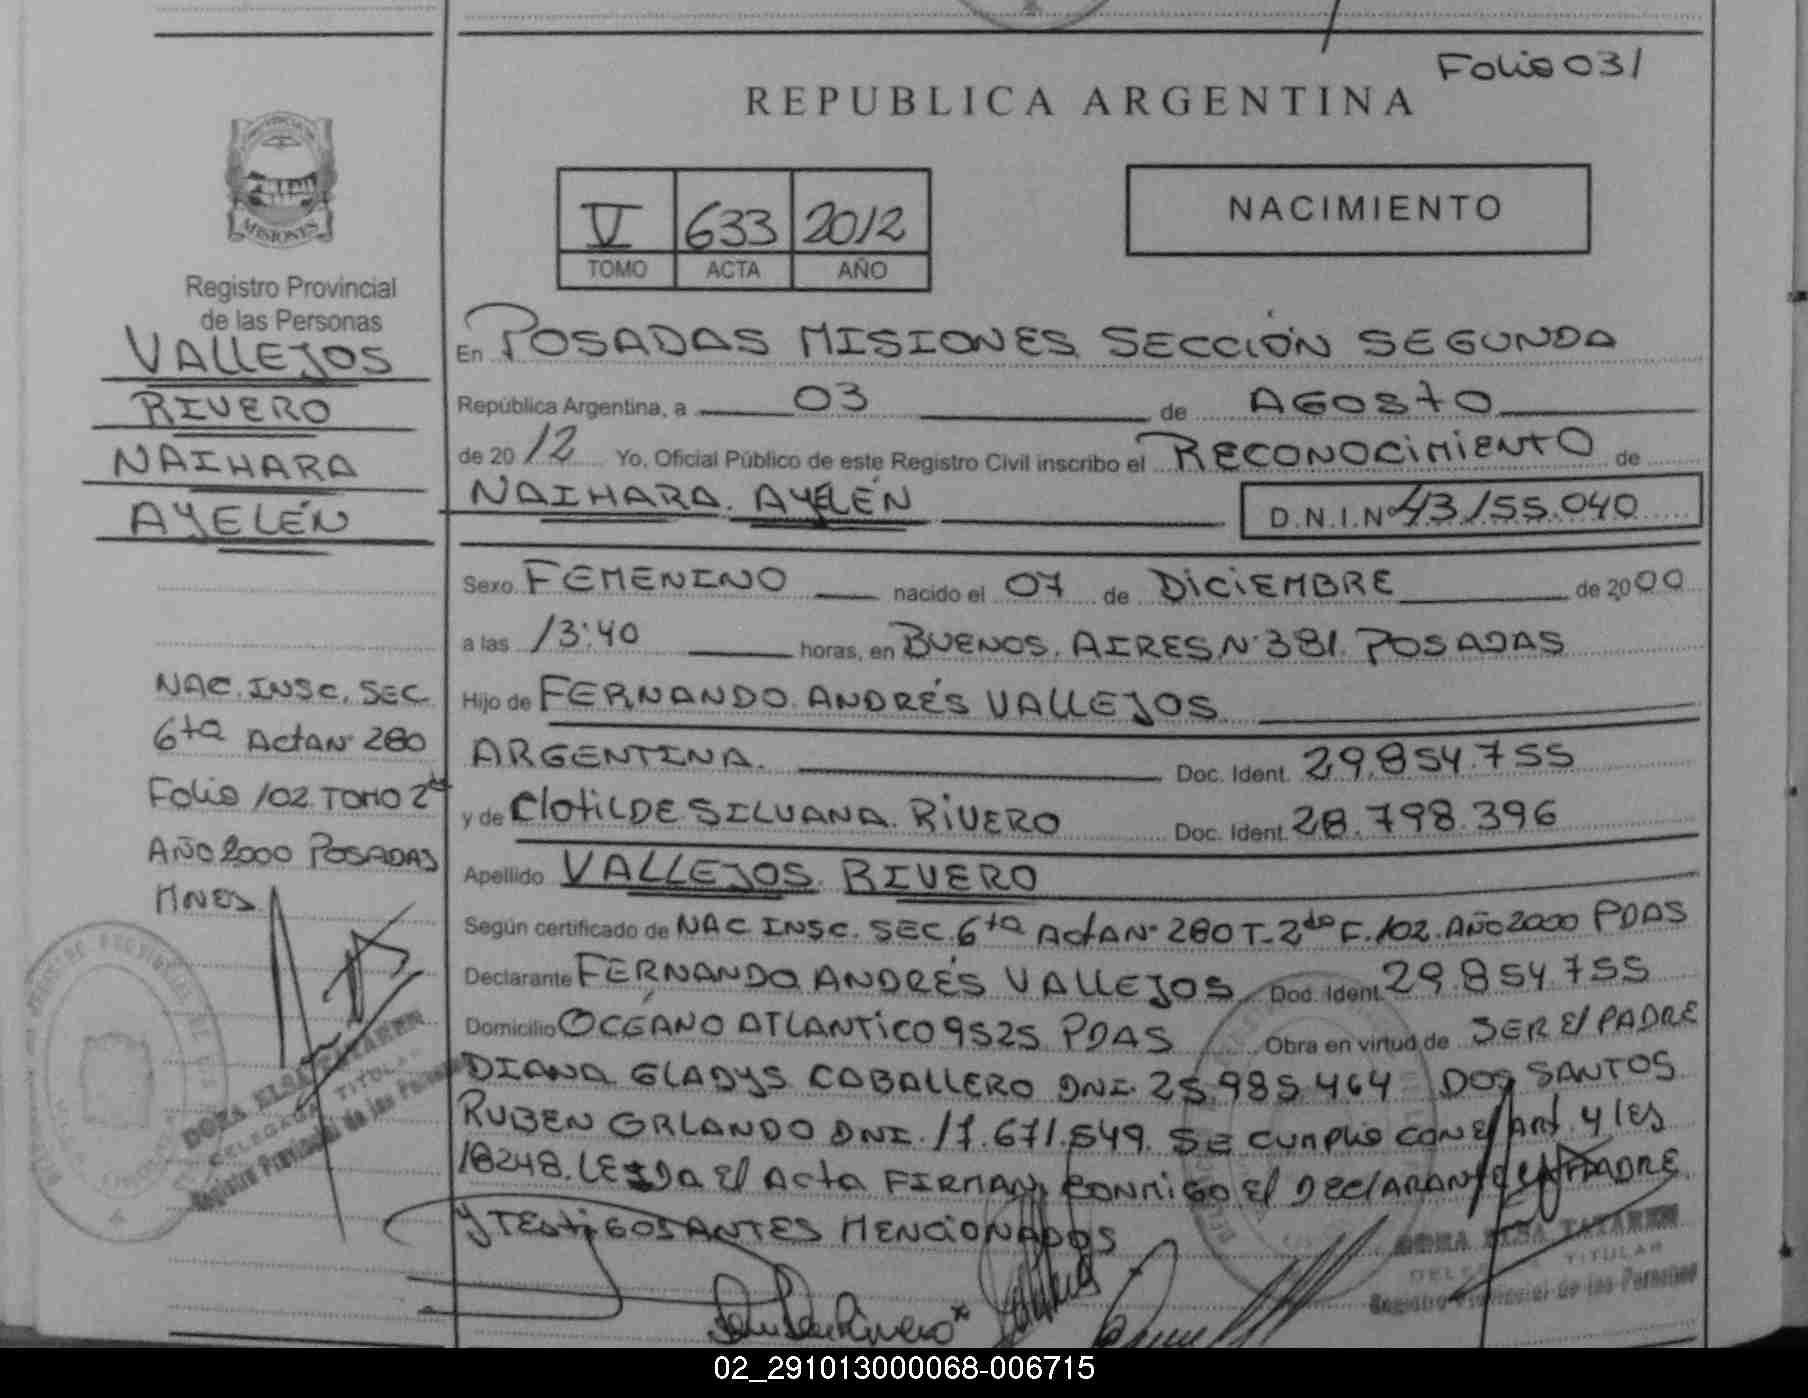 Folio 031
REPUBLICA ARGENTINA
V 633 2012
TOMO ACTA AÑO
NACIMIENTO
MISIONES
Registro Provincial
de las Personas
VALLEJOS
RIVERO
NAIHARA
AYELÉN
NAC. INSC. SEC.
6ta ActA Nº 280
Folio 102 TOMO 2do
AÑO 2000 POSADAS
MNES.
En POSADAS MISIONES SECCIÓN SEGUNDA
República Argentina, a 03 de AGOSTO
de 2012 Yo, Oficial Público de este Registro Civil inscribo el RECONOCIMIENTO de
NAIHARA. AYELÉN D.N.I.Nº 43.155.040
Sexo FEMENINO nacido el 07 de DICIEMBRE de 2000
a las 13:40 horas, en BUENOS. AIRES Nº 381. POSADAS
Hijo de FERNANDO ANDRÉS VALLEJOS
ARGENTINA. Doc. Ident. 29.854.755
y de CLOTILDE SILVANA. RIVERO Doc. Ident. 28.798.396
Apellido VALLEJOS. RIVERO
Según certificado de NAC INSC. SEC. 6ta ActA Nº 280 T. 2do F. 102. AÑO 2000 PDAS
Declarante FERNANDO ANDRÉS VALLEJOS Doc. Ident. 29.854.755
Domicilio OCÉANO ATLANTICO 9525 PDAS Obra en virtud de SER El PADRE
DIANA GLADYS CABALLERO DNI. 25.985.464 DOS SANTOS
RUBEN ORLANDO DNI. 17.671.549. SE cumplio con el Art. 4 ley
18248. LEIDA El Acta FIRMAN CONMIGO El DEClARANTE LA MADRE
y TEStiGOS ANTES MENCIONADOS
DORA ELSA TATAREN
DELEGADA TITULAR
Registro Provincial de las Personas
DORA ELSA TATAREN
DELEGADA TITULAR
Registro Provincial de las Personas
02_291013000068-006715